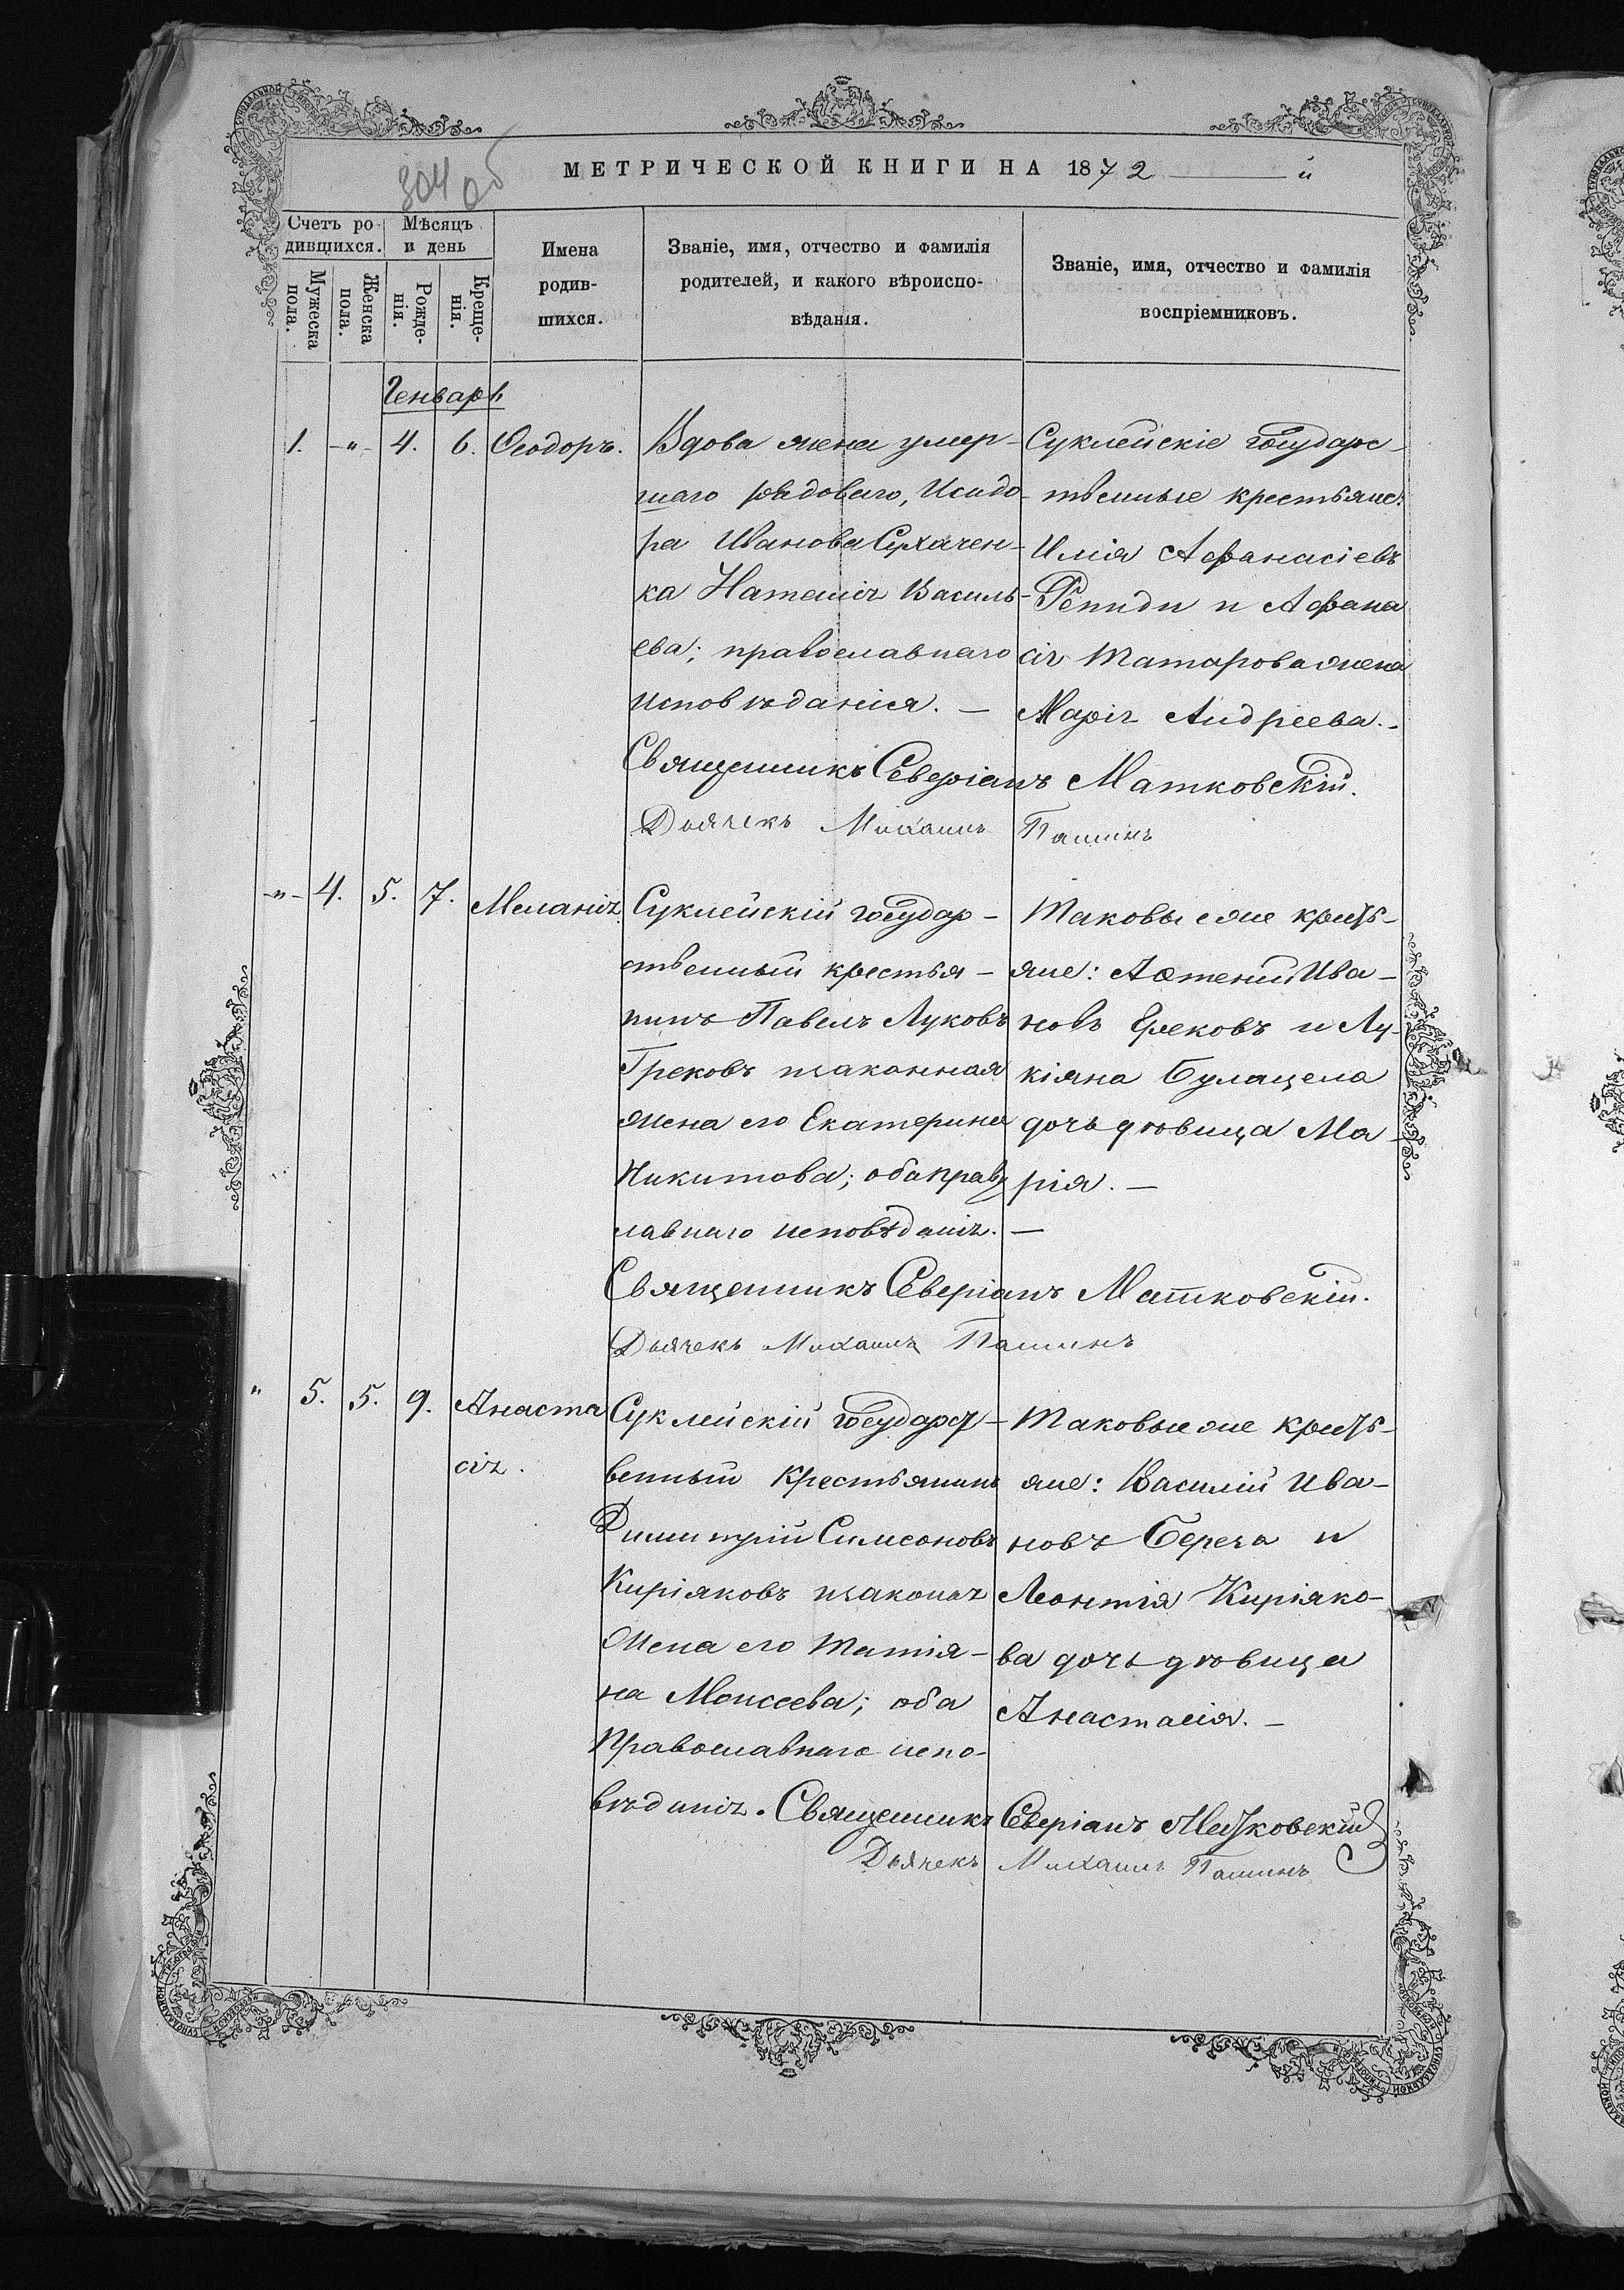 304 об
МЕТРИЧЕСКОЙ КНИГИ НА 1872
Счетъ родившихся.
Мѣсяцъ и день
Мужеска пола.
Женска пола.
Рожденія.
Крещенія.
Имена
родив-
шихся.
Званіе, имя, отчество и фамилія
родителей, и какого вѣроиспо-
вѣданія.
Званіе, имя, отчество и фамилія
воспріемниковъ.
Генварь
1. -"- 4. 6. Ѳеодоръ.
Вдова жена умер-
шаго рядоваго, Исидо-
ра Иванова Сухачен-
ка Наталія Василь-
ева; православнаго
исповѣданія. —
Суклейскіе государс-
твенные крестьяне:
Илія Афанасіевъ
Репиди и Афана
сія Татарова жена
Марія Андреева. -
Священникъ Северіанъ Матковскій.
Дьячекъ Михаилъ Пашинъ
-"- 4. 5. 7. Меланія.
Суклейскій государ-
ственный крестья-
нинъ Павелъ Луковъ
Грековъ и законная
жена его Екатерина
Никитова; оба право
лавнаго исповѣданія. —
Таковые же кресть-
яне: Ива-
новъ Грековъ и Лу-
кіяна Булацела
дочь дѣвица Ма-
рія. —
Священникъ Северіанъ Матковскій.
Дьячекъ Михаилъ Пашинъ
" 5. 5. 9. Анаста
сія.
Суклейскій государст-
венный крестьянинъ
Димитрій Симеоновъ
Киріяковъ и законая
жена его Татія-
на Моисеева; оба
православнаго испо-
вѣданія.
Таковые же кресть-
яне: Василій Ива-
новъ Береза и
Леонтія Киріяко-
ва дочь дѣвица
Анастасія. —
Священникъ Северіанъ Матковскій
Дьячекъ Михаилъ Пашинъ